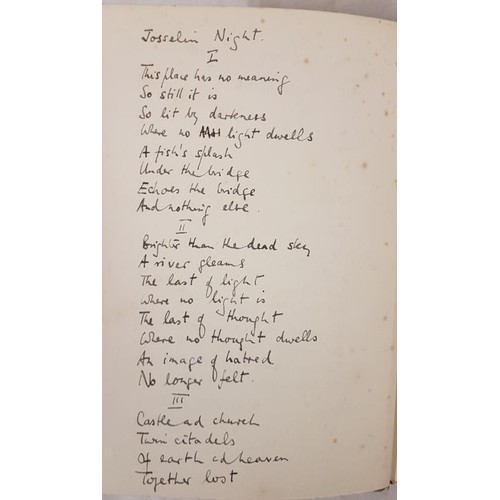 Josselin Night.
I
This place has no meaning
So still it is
So lit by darkness
Where no light dwells
A fish's splash
Under the bridge
Echoes the bridge
And nothing else.
II
Brighter than the dead sky
A river gleams
The last of light
Where no light is
The last of thought
Where no thought dwells
An image of hatred
No longer felt.
III
Castle ad church
Twin citadels
Of earth ad heaven
Together lost